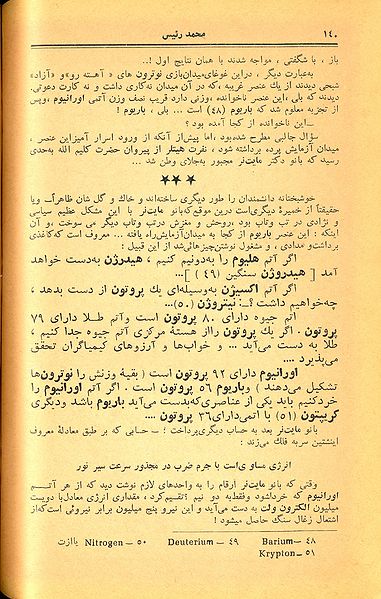 ۱۴۰
محمد رئیس
باز ، با شگفتی ، مواجه شدند با همان نتایج اول !..
به‌عبارت دیگر ، دراین غوغای‌میدان‌بازی نوترون های « آهسته رو» و «آزاد»
شبحی دیدند از یك عنصر غریبه ، که در آن میدان نه‌کاری داشت و نه کارت دعوتی.
دیدند که بلی ، این عنصر ناخوانده ، وزنی دارد قریب نصف وزن آتمی اورانیوم ، وپس
از تجزیه معلوم شد که ، باریوم (۴۸) است ... بلی ، باریوم !
ــ این ناخوانده از کجا آمده بود ؟
سؤال جالبی مطرح شده‌بود ، اما پیش‌از آنکه از ورود اسرار آمیزاین عنصر ،
میدان آزمایش پرده برداشته شود ، نفرت هیتلر از پیروان حضرت کلیم الله به‌حدی
رسید که بانو دکتر مایت‌نر مجبور به‌جلای وطن شد ...
★★★
خوشبختانه دانشمندان را طور دیگری ساخته‌اند و خاك و گل شان ظاهراً ـ ویا
حقیقتاً از خمیرهٔ دیگری‌است دراین موقع‌که بانو مایت‌نر با این مشکل عظیم سیاسی
و نژادی در تب وتاب بود ، روحش و مغزش درتب وتاب دیگر می سوخت ، و آن
اینکه : این عنصر باریوم از کجا به میدان‌آزمایش‌راه یافته ... معروف است که‌کاغذی
برداشت‌و مدادی ، و مشغول نوشتن‌چیزهائی‌شد از این قبیل :
اگر اتم هلیوم را به‌دونیم کنیم ، هیدرژن به‌دست خواهد
آمد [ هیدروژن سنگین (۴۹) ]...
اگر اتم اکسیژن به‌وسیله‌ای یك پروتون از دست بدهد ،
چه‌خواهیم داشت ؟ــ نیتروژن (۵۰)...
اتم جیوه دارای ۸۰ پروتون است واتم طلا دارای ۷۹
پروتون . اگر یك پروتون رااز هستهٔ مرکزی آتم جیوه جدا کنیم ،
طلا به دست می‌آید ... و خواب‌ها و آرزوهای کیمیاگران تحقق
می‌پذیرد ....
اورانیوم دارای ۹۲ پروتون است ( بقیهٔ وزنش را نوترون‌ها
تشکیل می‌دهند ) وباریوم ۵۶ پروتون است . اگر اتم اورانیوم را
خردکنیم باید یکی از عناصری‌که‌بدست می‌آید باریوم باشد ودیگری
کریپتون (۵۱) با اتمی‌دارای۳۶ پروتون ....
بانو مایت‌نر بعد به حساب دیگری‌پرداخت ؛ ــ حسابی که بر طبق معادلهٔ معروف
اینشتین سربه فلك می‌زند :
انرژی مساوی‌است با جرم ضرب در مجذور سرعت سیر نور
وقتی که بانو مایت‌نر ارقام را به واحدهای لازم نوشت دید که از هر آتم
اورانیوم که خردشود وفقط‌به دو نیم ؟تقسیم‌گردد ، مقداری انرژی معادل‌با دویست
میلیون الکترون ولت به دست می‌آید و این نیرو پنج میلیون برابر نیروئی است‌که‌از
اشتعال زغال سنگ حاصل میشود !
۴۸ – Barium ۴۹ – Deuterium ۵۰ – Nitrogen یاازت
۵۱ – Krypton